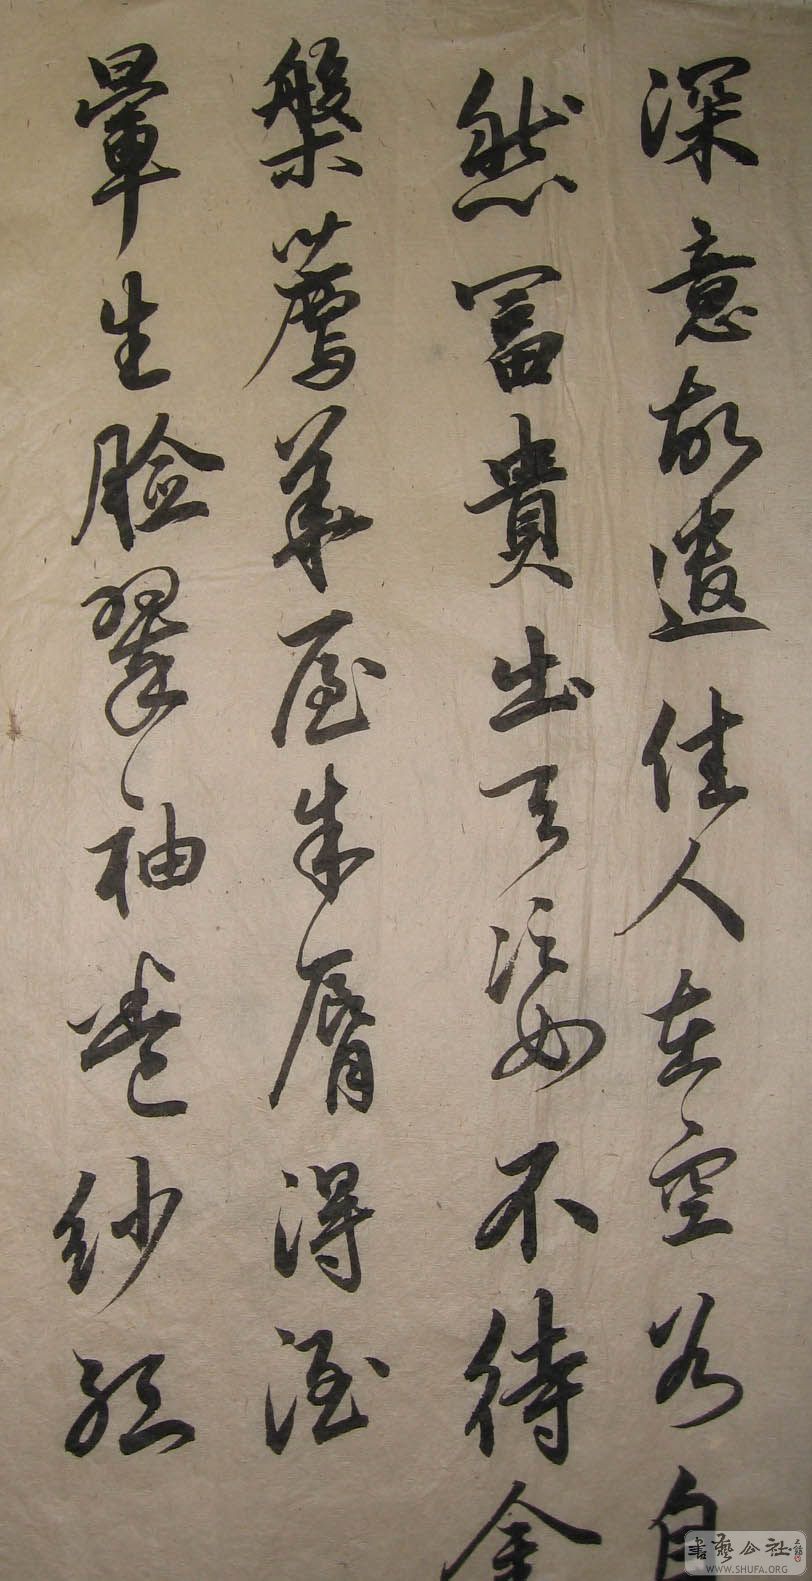 深意故遣佳人在空谷自
然富貴出天姿不待金
槃薦華屋朱脣得酒
暈生臉翠袖卷紗紅
書藝公社
WWW.SHUFA.ORG